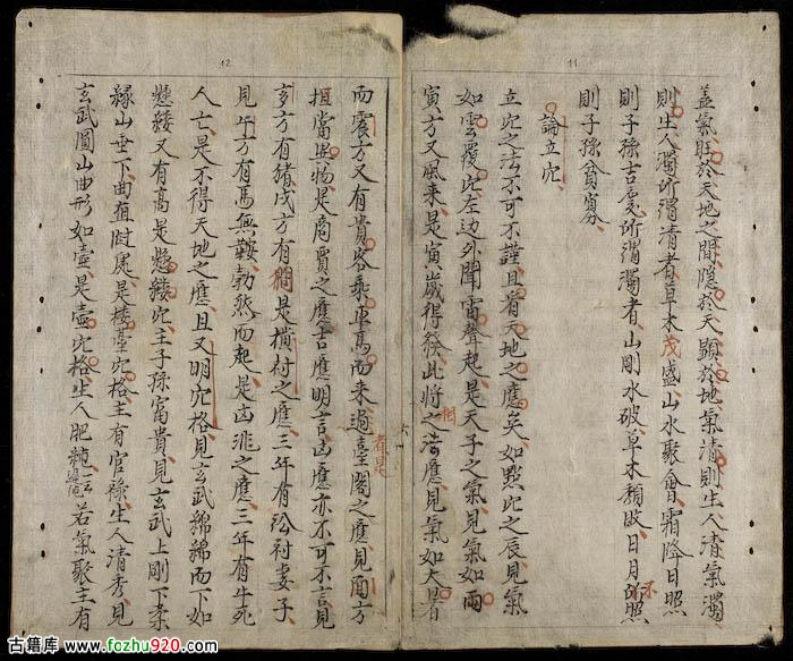 11
盖氣旺於天地之間、隱於天、顯於地、氣清則生人清、氣濁、
則生人濁、所謂清者、草木茂盛、山水聚會、霜降日照
則子孫吉慶、所謂濁者、山剛水破、草木頹敗、日月不照
則子孫貧寡、
論立穴、
立穴之法不可不謹、且看天地之應矣、如點穴之辰、見氣
如雲覆穴、左边外聞雷聲起、是天子之氣、見氣如雨
寅方又風来、是寅歲得發、此將相之法應、見氣如大暑
六
12
而震方又有貴客乘車馬而来、過臺閣之應、見酉方
者是
担當異物、是商賈之應、吉應明言、凶應亦不可不言、見
亥方有猪、戌方有 是 之應、三年有訟 妻子、
見午方有馬無鞍、勃然而起、是凶 之應、三年有牛死
人亡、是不得天地之應、且又明穴格、見玄武綿綿而下如
懸綾、又有高是懸綾穴、主子孫富貴、見玄武上剛下柔
緣山垂下、曲直 處、是楼臺穴格、主有官祿、生人清秀、見
玄武圓山曲形如壺、是壺穴格、生人肥 、若氣聚主有
古籍库 www.fozhu920.com